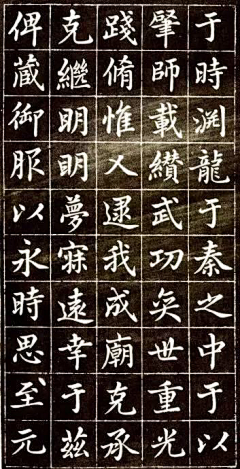 于時淵龍于秦之中于以
肇師載纘武功奕世重光
踐脩惟乂逮我成廟克承
克繼明明夢寐遠幸于茲
俾蔵御服以永時思至元